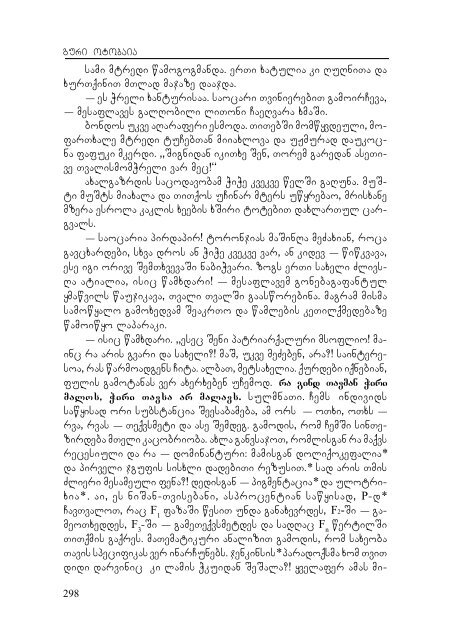 გური ოტობაია
სამი მტრედი წამოგოგმანდა. ერთი ხატულია კი ღუღნითა და
ხურთქინით მთლად მაჯაზე დააჯდა.
— ეს ჭრელი ხანტურისაა. საოცარი თვინიერებით გამოირჩევა,
— მესაფლავეს გალღობილი ლითონი ჩაეღვარა ხმაში.
ბონდოს უკვე აღარაფერი ესმოდა. თითებში მომწყვდეული, მო-
ფართხალე მტრედი ტუჩებთან მიიახლოვა და უჟმურად დაუკოც-
ნა ფაფუკი მკერდი. ,,შიგნიდან იკითხე შენ, თორემ გარედან ასეთი-
ვე თვალისმომჭრელი ვარ მეც!“
ახალგაზრდის საცოდავობამ ჭიჭე კვეკვე წელში გაღუნა. მუშ-
ტი მუშტს მიახალა და თითქოს უჩინარ მტერს უწყრებაო, მრისხანე
მზერა ესროლა კაკლის ხეების ხშირი ტოტებით დახლართულ ცარ-
გვალს.
— საოცარია პირდაპირ! ტორონჯიას მაშინღა მეძახიან, როცა
გავცხარდები, სხვა დროს ან ჭიჭე კვეკვე ვარ, ან კიდევ — წიწკვავა,
ესე იგი ორივე შემთხვევაში ნაბიჭვარი. ზოგს ერთი სახელი ძლივს-
ღა ატიალია, ისიც წამხდარი! — მესაფლავემ გონებაგაფანტულ
ყმაწვილს წაუჯიკავა, თვალი თვალში გაასწორებინა. მაგრამ მისმა
სამოწყალო გამოხედვამ შეაკრთო და წამლების კეთილქმედებაზე
წამოიწყო ლაპარაკი.
— ისიც წამხდარი. ,,ესეც შენი პატრიარქალური მსოფლიო! მა-
ინც რა არის გვარი და სახელი?! მაშ, უკვე მეძებენ, არა?! საინტერე-
სოა, რას წარმოადგენს ჩიტა. ალბათ, მეტსახელია. ქურდები იქნებიან,
ფულის გამოტანას ვერ ახერხებენ უჩემოდ. რა გინდ თავმან ჭირი
მალოს, ჭირი თავსა არ მალავს. სულმნათი. ჩემს ინდივიდს
საწყისად ორი სუბსტანცია შეესაბამება, ამ ორს — ოთხი, ოთხს —
რვა, რვას — თექვსმეტი და ასე შემდეგ. გამოდის, რომ ჩემში სინთე-
ზირდება მთელი კაცობრიობა. ახლა განვსაჯოთ, რომლისგან რა მაქვს
რეცესიული და რა — დომინანტური: მამისგან დოლიქოკეფალია*
და პირველი ჯგუფის სისხლი დადებითი რეზუსით.* სად არის თმის
ძლიერი მესამეული ფენა?! დედისგან — პიგმენტაცია* და ულოტრი-
ხია*. აი, ეს ნიშან-თვისებანი, ასპროცენტიან საწყისად, P-დ*
ჩავთვალოთ, რაც F₁ ფაზაში წესით უნდა განახევრდეს, F₂-ში — გა-
მეოთხედდეს, F₃-ში — გამეთექვსმეტდეს და სადღაც Fₙ წერტილში
თითქმის გაქრეს. მათემატიკური ანალიზით გამოდის, რომ სახეობა
თავის სპეციფიკას ვერ ინარჩუნებს. ჯენკინსის* პარადოქსმა ხომ თვით
დიდი დარვინიც კი ლამის ჭკუიდან შეშალა?! ყველაფერ ამას მი-
298